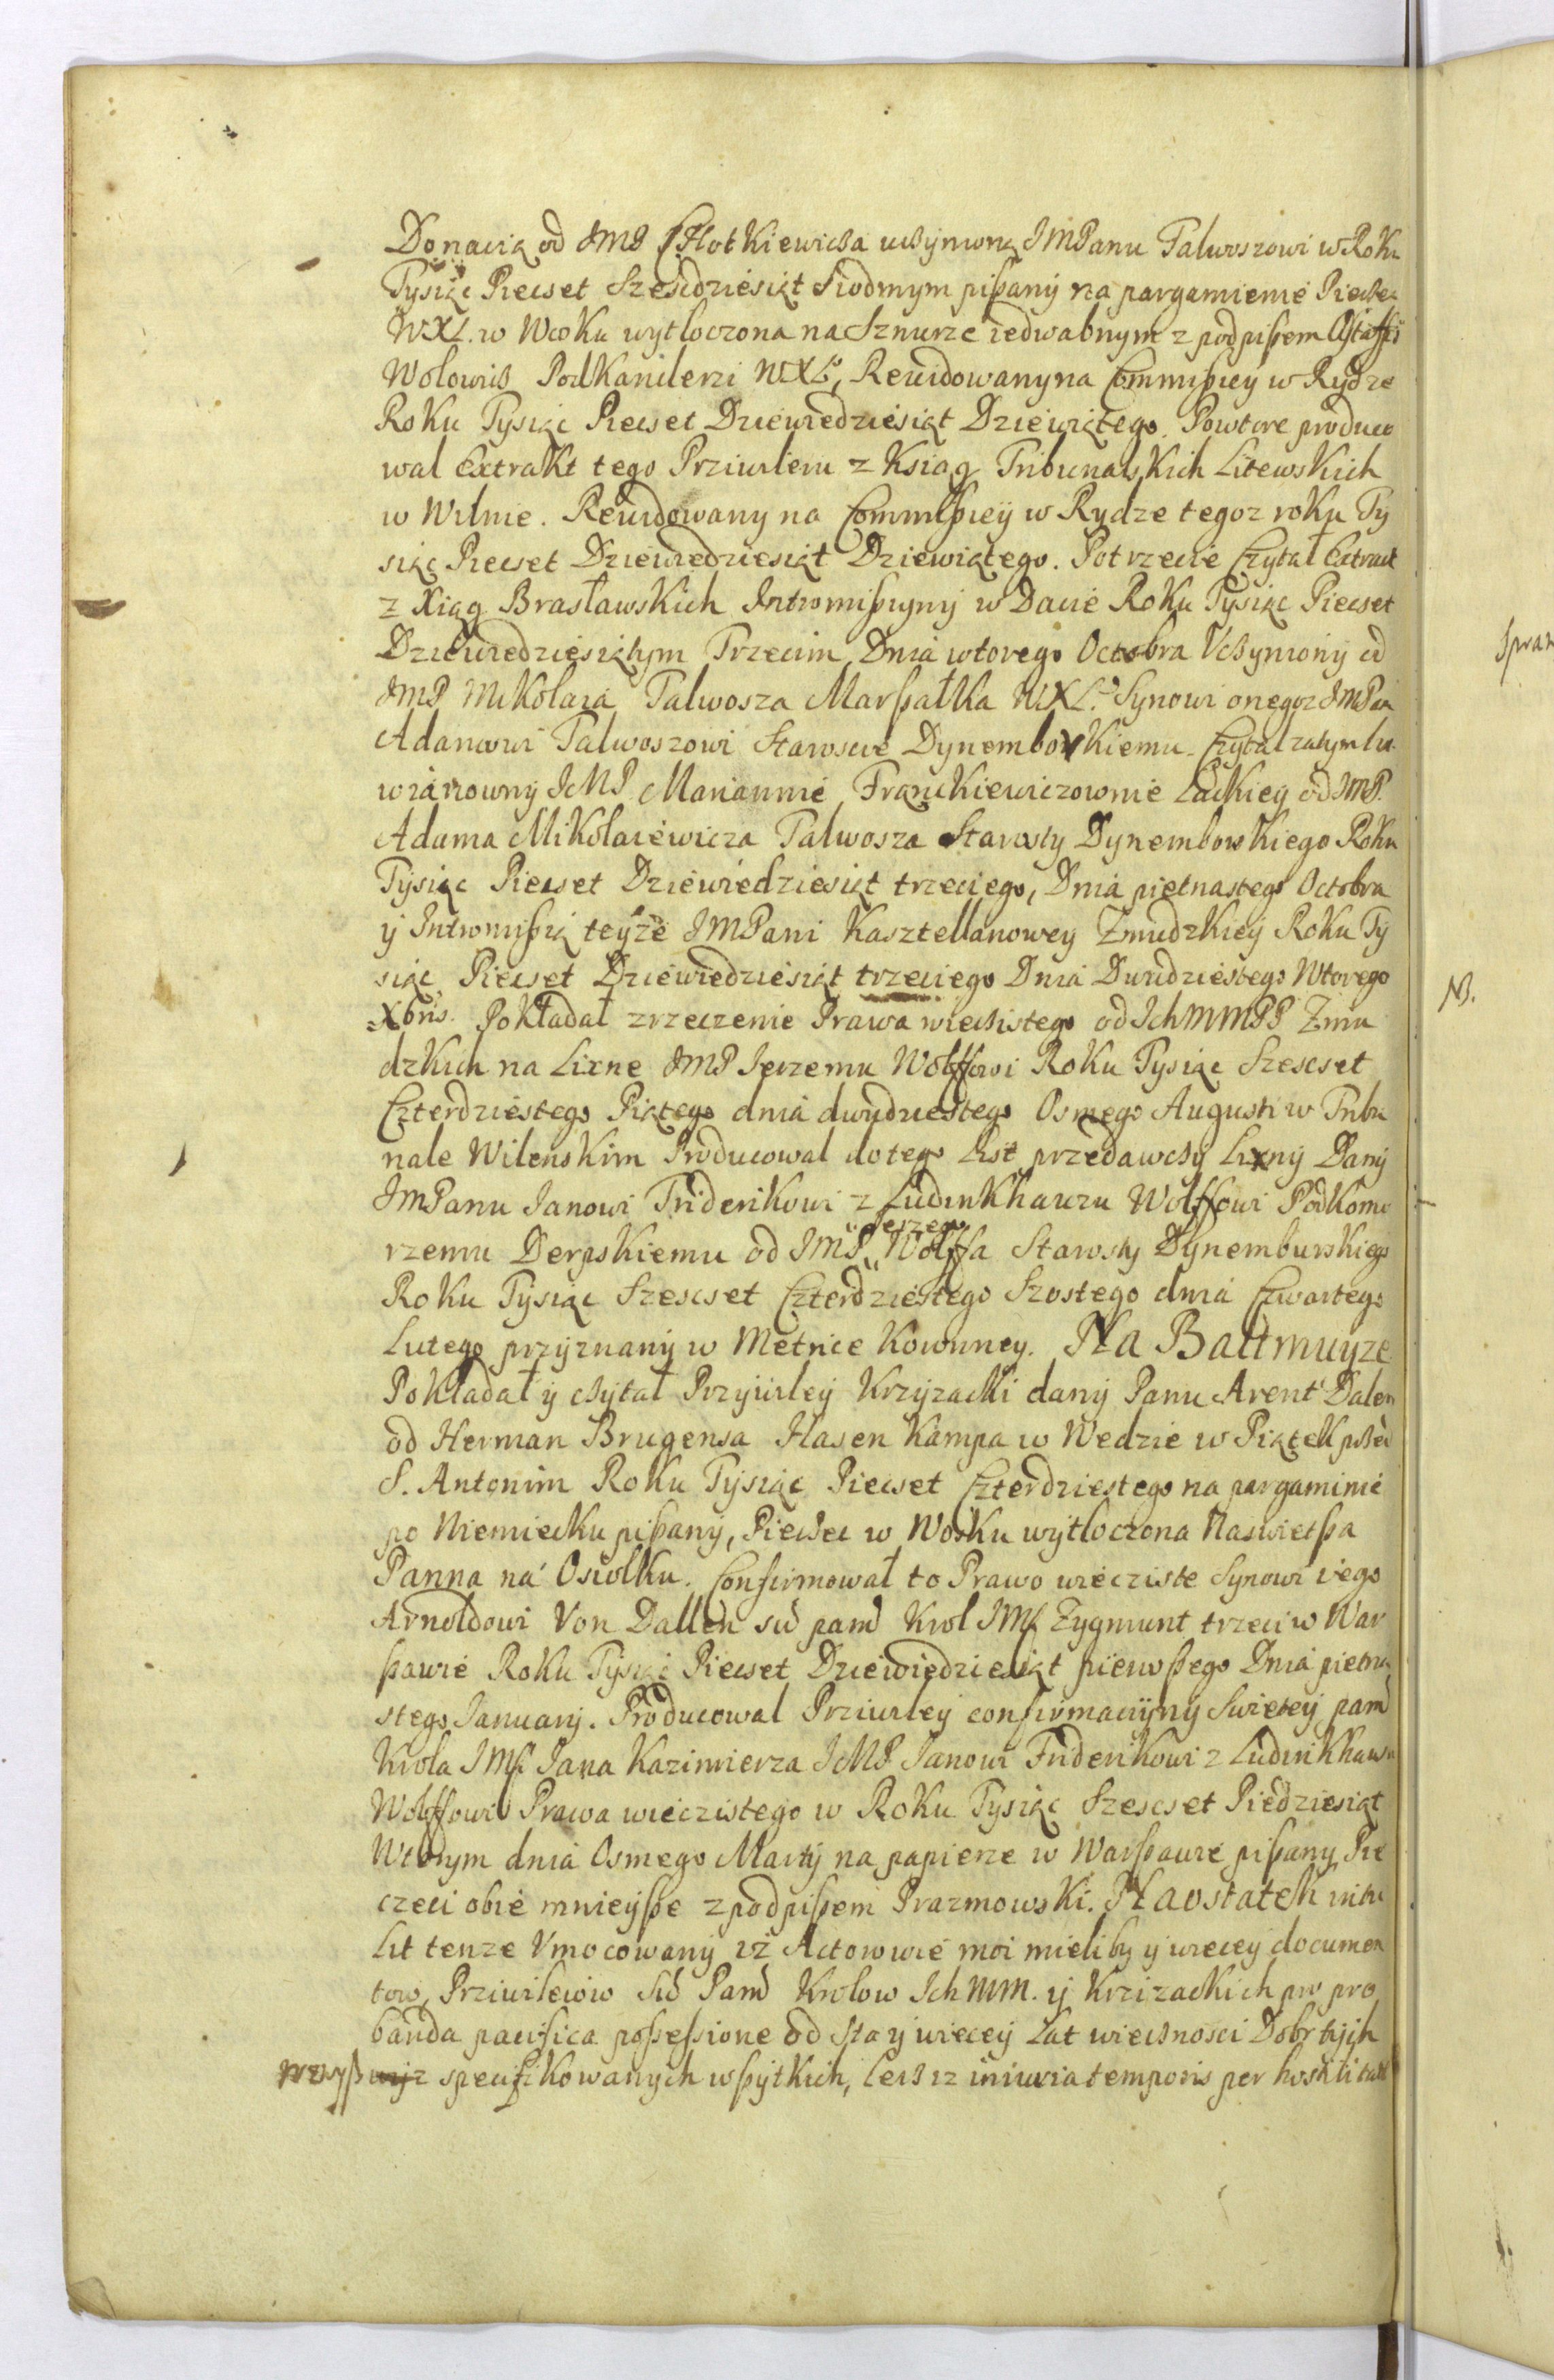 Donacią od JMP Chotkiewicza uczynioną JMPanu Talwoszowi w Roku
Tysiąc Piecset Szescdziesiąt Siodmym pißany na pargamienie Pieczec
WXL. w Wosku wytłoczona na Sznurze iedwabnym z podpißem Ostaffi
Wołowicz Podkanclerzi WXLo, Rewidowany na Commißiey w Rydze
Roku Tysiąc Piecset Dziewiedziesiąt Dziewiątego. Powtore produco
wal Extrakt tego Prziwileiu z Ksiąg Tribunalskich Litewskich
w Wilnie. Rewidowany na Commißiey w Rydze tegoz roku Ty
siąc Piecset Dziewiedziesiąt Dziewiątego. Potrzecie Czytał Extract
z Xiąg Brasławskich Intromißyiny w Dacie Roku Tysiąc Piecset
Dziewiedziesiątym Trzecim Dnia wtorego Octobra Vczyniony od
JMP Mikołaia Talwosza Marßałka WXL.o Synowi onegoz JMPan
Adamowi Talwoszowi Staroscie Dynemborskiemu. Czytal zatym
wianowny JeMP. Mariannie Franckiewiczownie Lackiey od JMP.
Adama Mikołaiewicza Talwosza Starosty Dynemborskiego Roku
Tysiąc Piecset Dziewiedziesiąt trzeciego, Dnia pietnastego Octobra
y Intromißią teyże JMPani Kasztellanowey Zmudzkiey Roku Ty
siąc Piecset Dziewiedziesiąt trzeciego Dnia Dwudziestego Wtorego
Xbris. Pokładał zrzeczenie Prawa wieczistego od Ich MMPP Zmu
dzkich na Lixne JMP Jerzemu Wolffowi Roku Tysiąc Szescset
Czterdziestego Piątego dnia dwudziestego Osmego Augusti w Tribu
nale Wilenskim Producował do tego List przedawczy Lixny Dany
JMPanu Janowi Friderikowi z Ludinkhauzu Wolffowi Podkomo
rzemu Derpskiemu od JMP. Jerzego Wolffa Starosty Dynemburskiego
Roku Tysiąc Szescset Czterdziestego Szostego dnia Czwartego
Lutego przyznany w Metrice Kownney. Na Baltmuyze
Pokładał y czytał Przywiley Krzyzacki dany Panu Arent Dalen
od Herman Brugensa Hasen Kampa w Wedzie w Piątek przed
S. Antonim Roku Tysiąc Piecset Czterdziestego na pargaminie
po Niemiecku pißany, Pieczec w Wosku wytloczona Naswietßa
Panna na Osiolku. Confirmował to Prawo wiecziste Synowi iego
Arnoldowi Von Dallen swd pamd Krol JMs Zygmunt trzeci w War
ßawie Roku Tysiąc Piecset Dziewiędziesiąt pierwßego Dnia pietna
stego January. Producowal Prziwiley confirmacyiny Swietey pamd
Krola JMsi Jana Kazimierza JeMP. Janowi Friderikowi z Ludinkhawzu
Wolffowi Prawa wieczistego w Roku Tysiąc Szescset Piedziesiąt
Wtorym dnia Osmego Marty na papierze w Warßawie pißany Pie
czeci obie mnieyße z podpißem Prazmowski. Na ostatek intu
lit tenze Vmocowany iż Actorowie moi mieliby y wiecey documen
tow, Prziwilewiw Swd Pamd Krolow Ich MM. y Krzizackich pro pro
banda pacifica possessione od sta y wiecey Lat wiecznosci Dobr tych
wzwyß wyz specifikowanych wßytkich, lecz iz iniuria temporis per hostilitate
Spraw
NB.